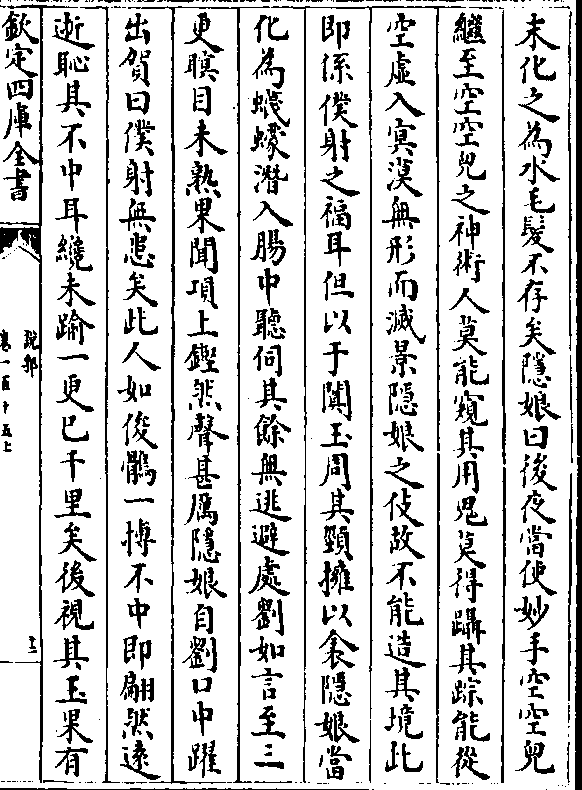 末化之為水毛髮不存矣隱娘曰後夜當使妙手空空兒
繼至空空兒之神術人莫能窺其用鬼莫得躡其踪能從
空虛入㝠漠無形而滅景隱娘之伎故不能造其境此
即係僕射之福耳但以于闐玉周其頸擁以衾隱娘當
化為蠛蠓潛入腸中聽伺其餘無逃避處劉如言至三
更瞑目未熟果聞項上鏗然聲甚厲隱娘自劉口中躍
出賀曰僕射無恙矣此人如俊鶻一搏不中即翩然遠
逝恥其不中耳纔未踰一更已千里矣後視其玉果有
欽定四庫全書
說郛
卷一百十五上
十二